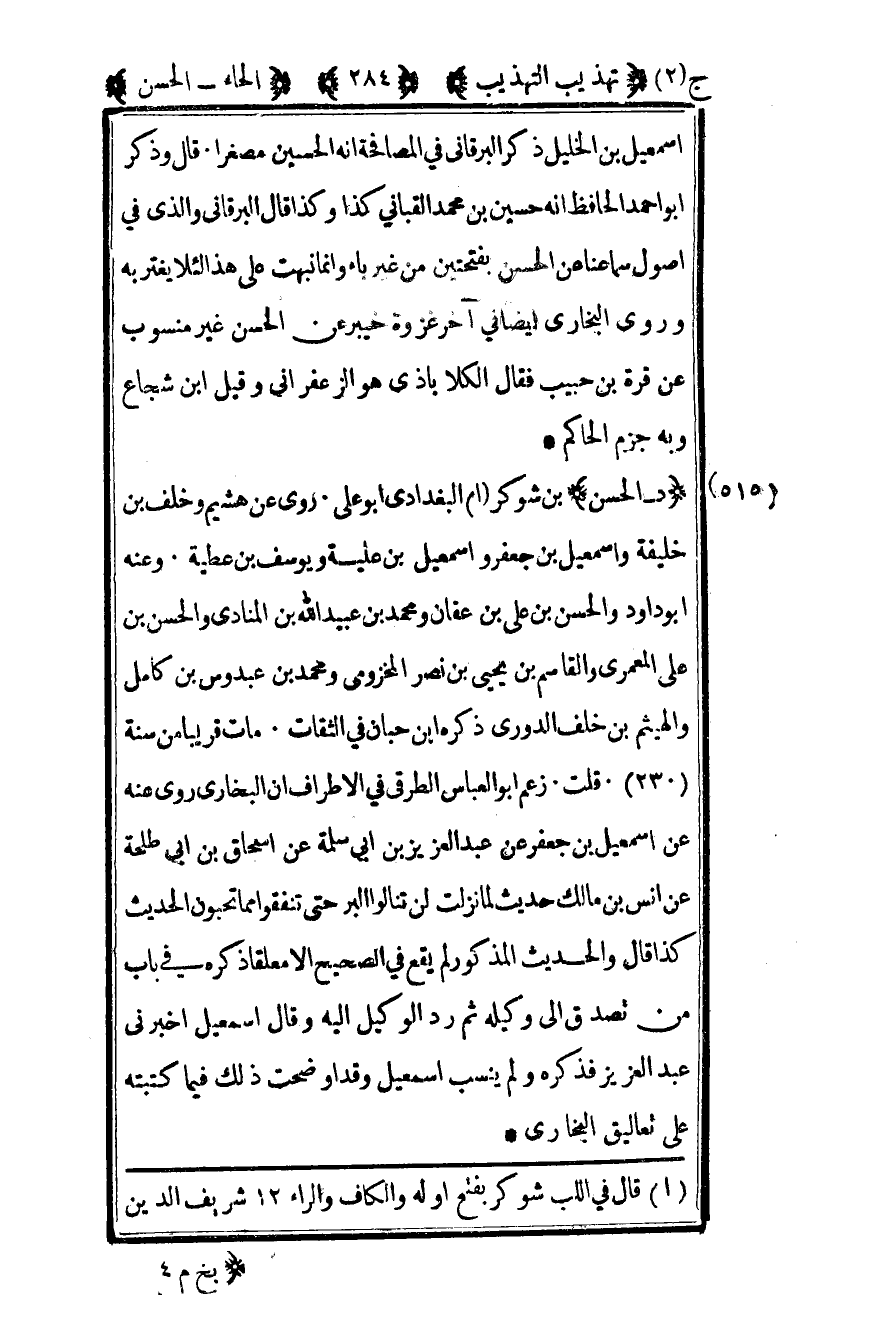 ج(٢) ﴿ تهذيب التهذيب ﴾ ﴿ ٢٨٤ ﴾ ﴿ الحاء ــ الحسن ﴾
اسمعيل بن الخليل ذكر البرقانى في المصافحة انه الحسين مصغرا ٠ قال وذكر
ابو احمد الحافظ انه حسين بن محمد القباني كذا وكذا قال البرقانى والذى في
اصول سماعنا عن الحسن بفتحتين من غير ياء وانما نبهت على هذا لئلا يغتر به
وروى البخارى ايضا في آخر غزوة خيبر عن الحسن غير منسوب
عن قرة بن حبيب فقال الكلاباذى هو الزعفرانى وقيل ابن شجاع
وبه جزم الحاكم •
(٥١٥) ﴿ د ـ الحسن ﴾ بن شوكر (١) البغدادى ابو على ٠ روى عن هشيم وخلف بن
خليفة واسمعيل بن جعفر واسمعيل بن علية ويوسف بن عطية ٠ وعنه
ابو داود والحسن بن على بن عفان ومحمد بن عبيد الله بن المنادى والحسن بن
على المعمرى والقاسم بن يحيى بن نصر المخزومى ومحمد بن عبدوس بن كامل
والهيثم بن خلف الدورى ذكره ابن حبان في الثقات ٠ مات قريبا من سنة
(٢٣٠) ٠ قلت ٠ زعم ابو العباس الطرقى في الاطراف ان البخارى روى عنه
عن اسمعيل بن جعفر عن عبد العزيز بن ابي سلمة عن اسحاق بن ابي طلحة
عن انس بن مالك حديث لما نزلت لن تنالوا البر حتى تنفقوا مما تحبون الحديث
كذا قال والحديث المذكور لم يقع في الصحيح الا معلقا ذكره في باب
من تصدق الى وكيله ثم رد الوكيل اليه وقال اسمعيل اخبرنى
عبد العزيز فذكره ولم ينسب اسمعيل وقد اوضحت ذلك فيما كتبته
على تعاليق البخارى •
(١) قال في اللب شوكر بفتح اوله والكاف والراء ١٢ شريف الدين
﴿ بخ م ٤